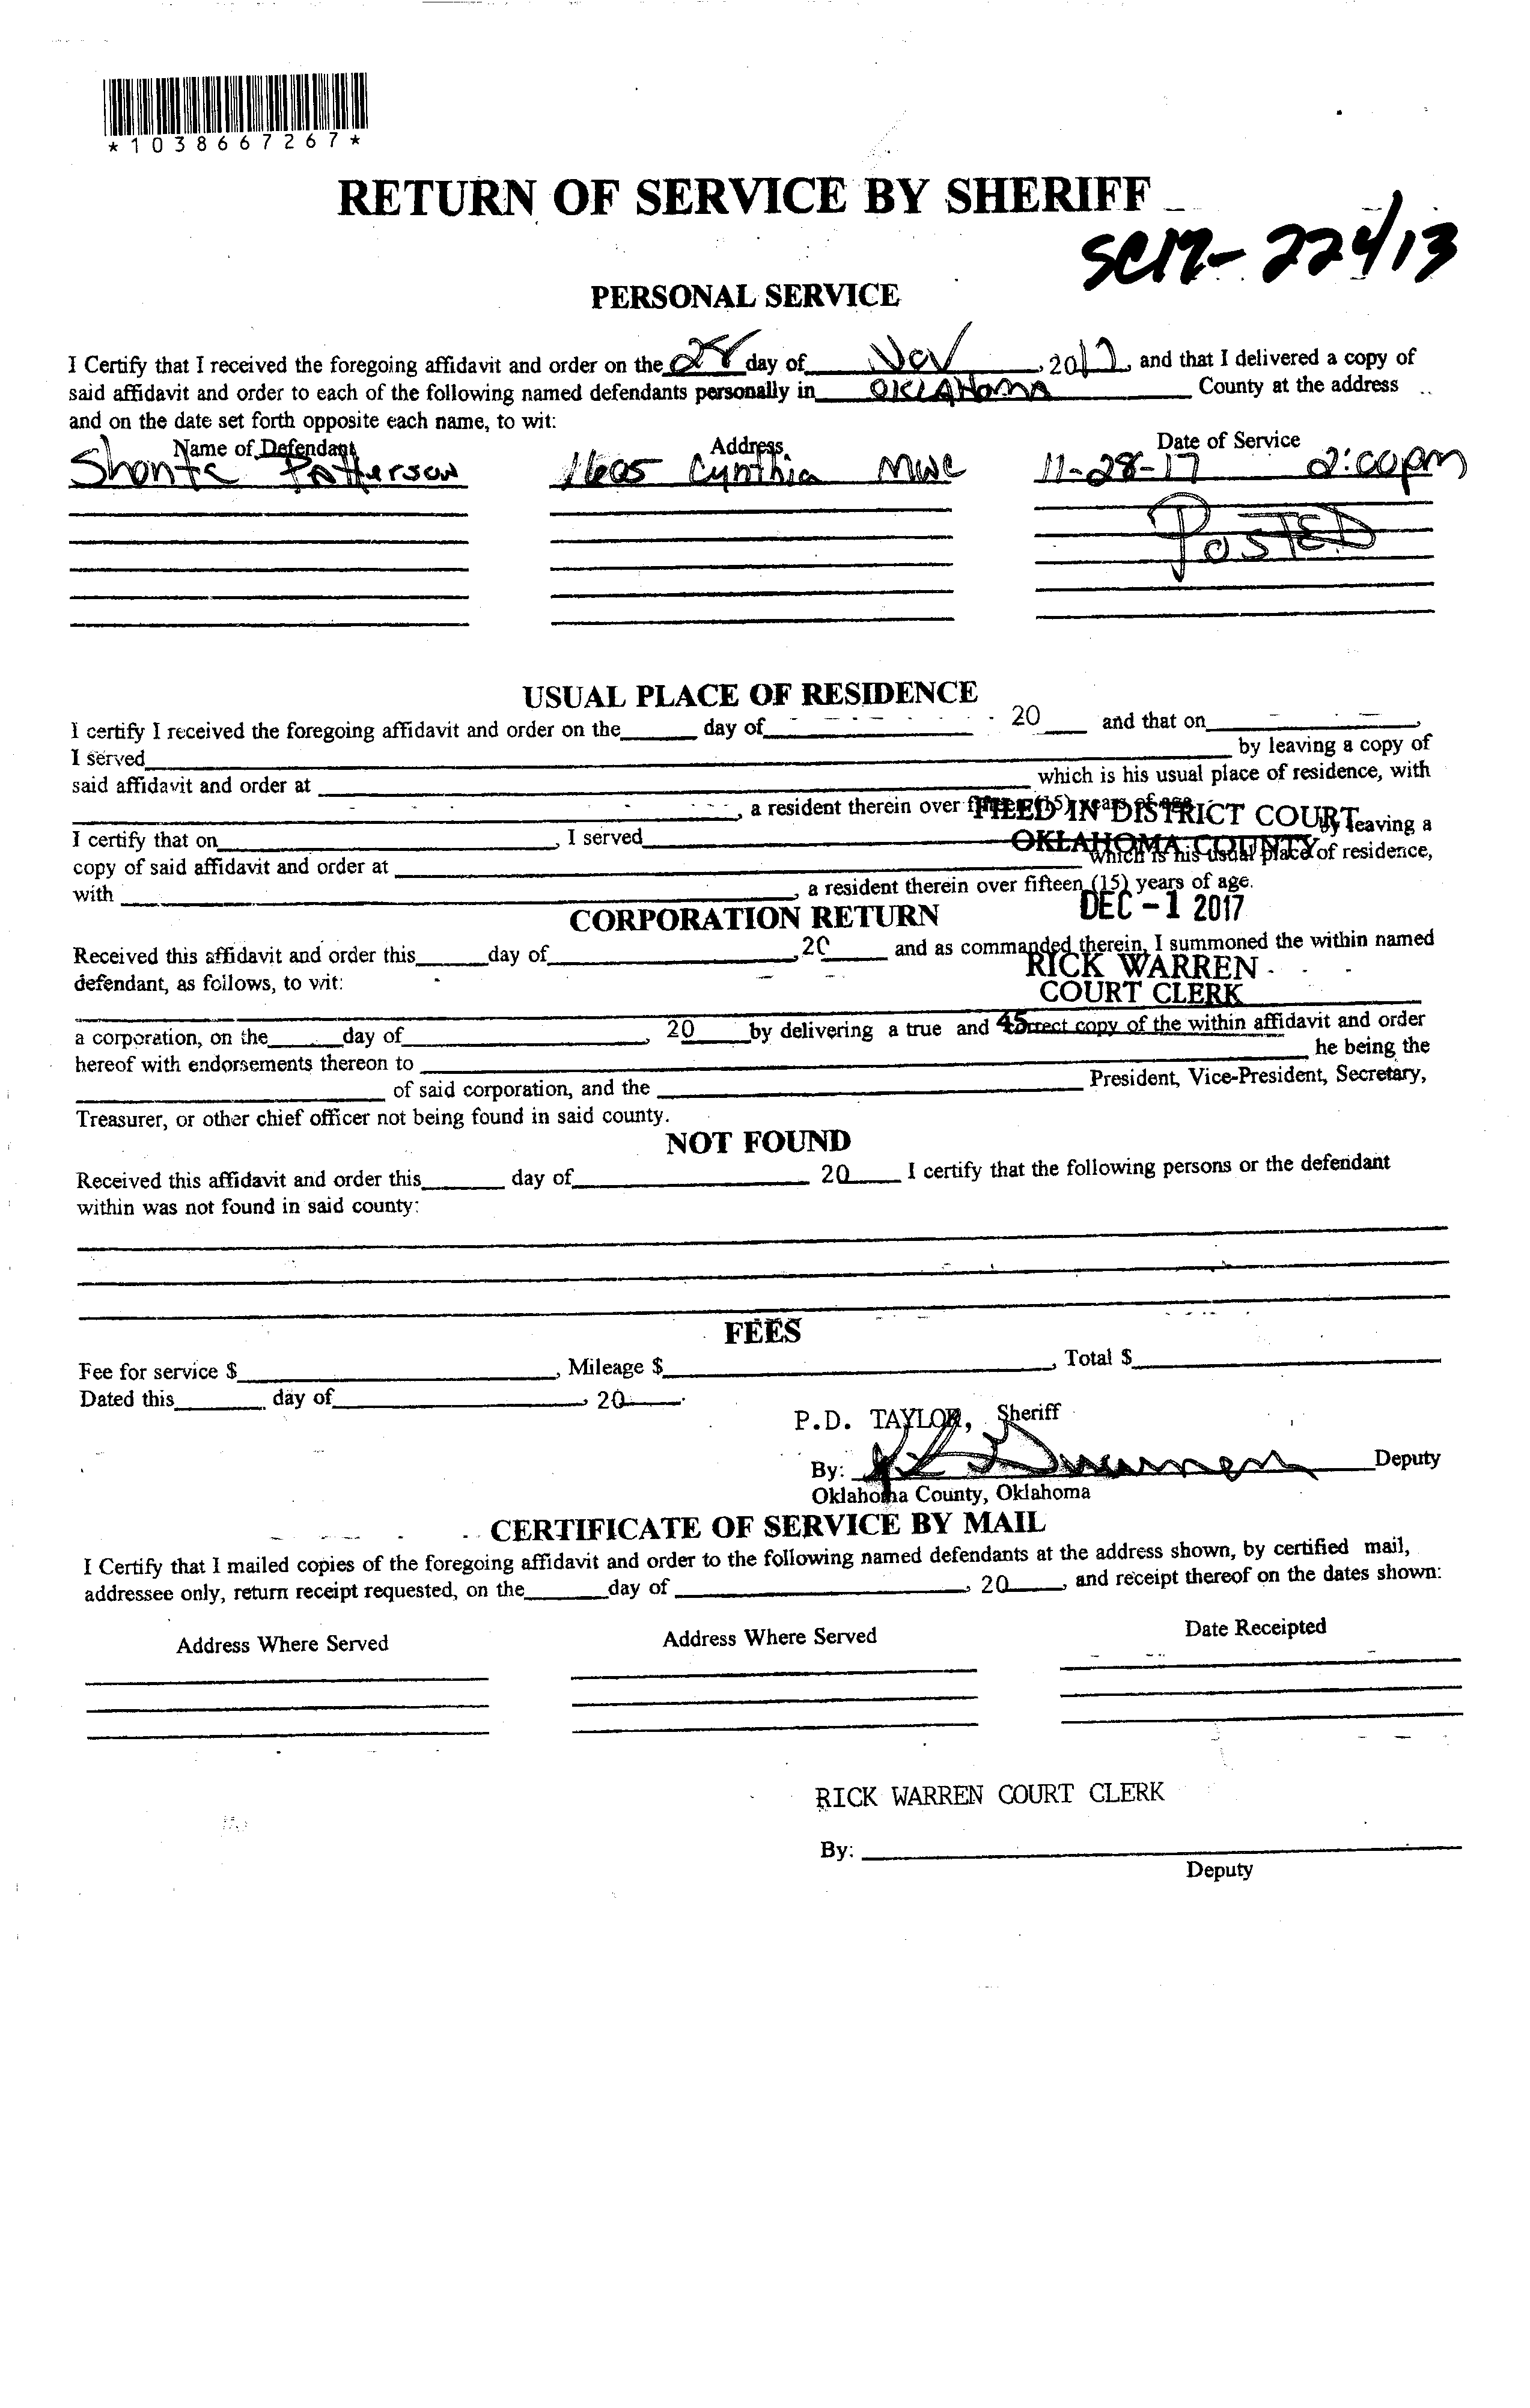 *1038667267*
RETURN OF SERVICE BY SHERIFF
SC17-22413
PERSONAL SERVICE
I Certify that I received the foregoing affidavit and order on the 28 day of Nov, 2017, and that I delivered a copy of
said affidavit and order to each of the following named defendants personally in OKLAHOMA County at the address
and on the date set forth opposite each name, to wit:
Name of Defendant Address Date of Service
Patterson Cynthia MWC 11-28-17 2:00pm
POSTED
USUAL PLACE OF RESIDENCE
I certify I received the foregoing affidavit and order on the______ day of______ 20___ and that on______,
I served______ by leaving a copy of
said affidavit and order at ______ which is his usual place of residence, with
______, a resident therein over fifteen (15) years of age.
FILED IN DISTRICT COURT
I certify that on______, I served______ by leaving a
OKLAHOMA COUNTY
copy of said affidavit and order at ______ which is his usual place of residence,
with ______, a resident therein over fifteen (15) years of age.
DEC -1 2017
CORPORATION RETURN
Received this affidavit and order this______day of______, 20___ and as commanded therein, I summoned the within named
RICK WARREN
defendant, as follows, to wit:
COURT CLERK
45
a corporation, on the______day of______, 20___by delivering a true and correct copy of the within affidavit and order
hereof with endorsements thereon to ______ he being the
______ of said corporation, and the ______ President, Vice-President, Secretary,
Treasurer, or other chief officer not being found in said county.
NOT FOUND
Received this affidavit and order this______ day of______ 20___ I certify that the following persons or the defendant
within was not found in said county:
FEES
Fee for service $______, Mileage $______, Total $______
Dated this______ day of______, 20___.
P.D. TAYLOR, Sheriff
By: ______ Deputy
Oklahoma County, Oklahoma
CERTIFICATE OF SERVICE BY MAIL
I Certify that I mailed copies of the foregoing affidavit and order to the following named defendants at the address shown, by certified mail,
addressee only, return receipt requested, on the______day of ______, 20___, and receipt thereof on the dates shown:
Address Where Served Address Where Served Date Receipted
RICK WARREN COURT CLERK
By: ______
Deputy